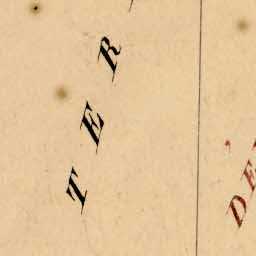 TER
DE